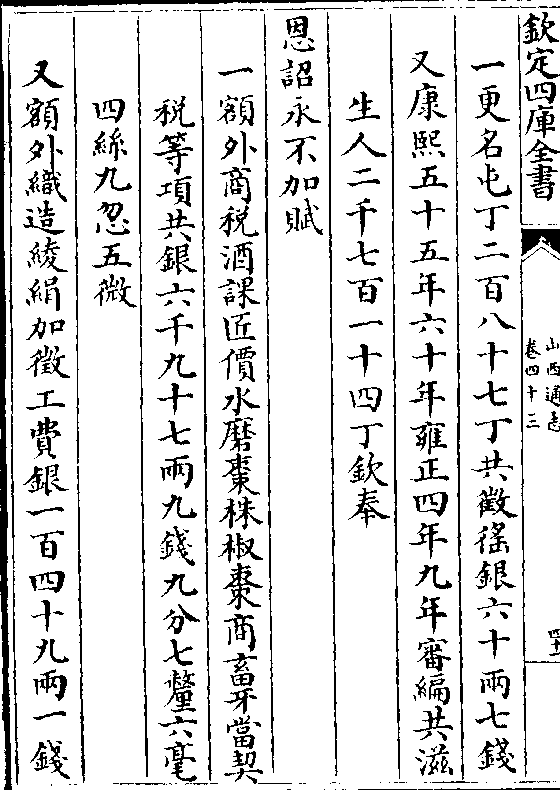 欽定四庫全書
山西通志
卷四十三
一更名屯丁二百八十七丁共徵徭銀六十兩七錢
又康熙五十五年六十年雍正四年九年審編共滋
生人二千七百一十四丁欽奉
恩詔永不加賦
一額外商稅酒課匠價水磨棗株椒棗商畜牙當契
税等項共銀六千九十七兩九錢九分七釐六毫
四絲九忽五微
又額外織造綾絹加徵工費銀一百四十九兩一錢